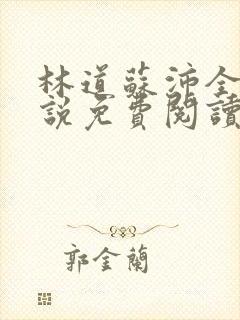 林道蘇沛全
說免費閱讀
郭金蘭